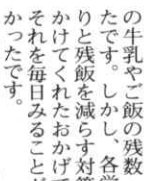 の牛乳やご飯の残数
たです。しかし、各学
りと残飯を減らす対策
かけてくれたおかげで
それを毎日みること
かったです。